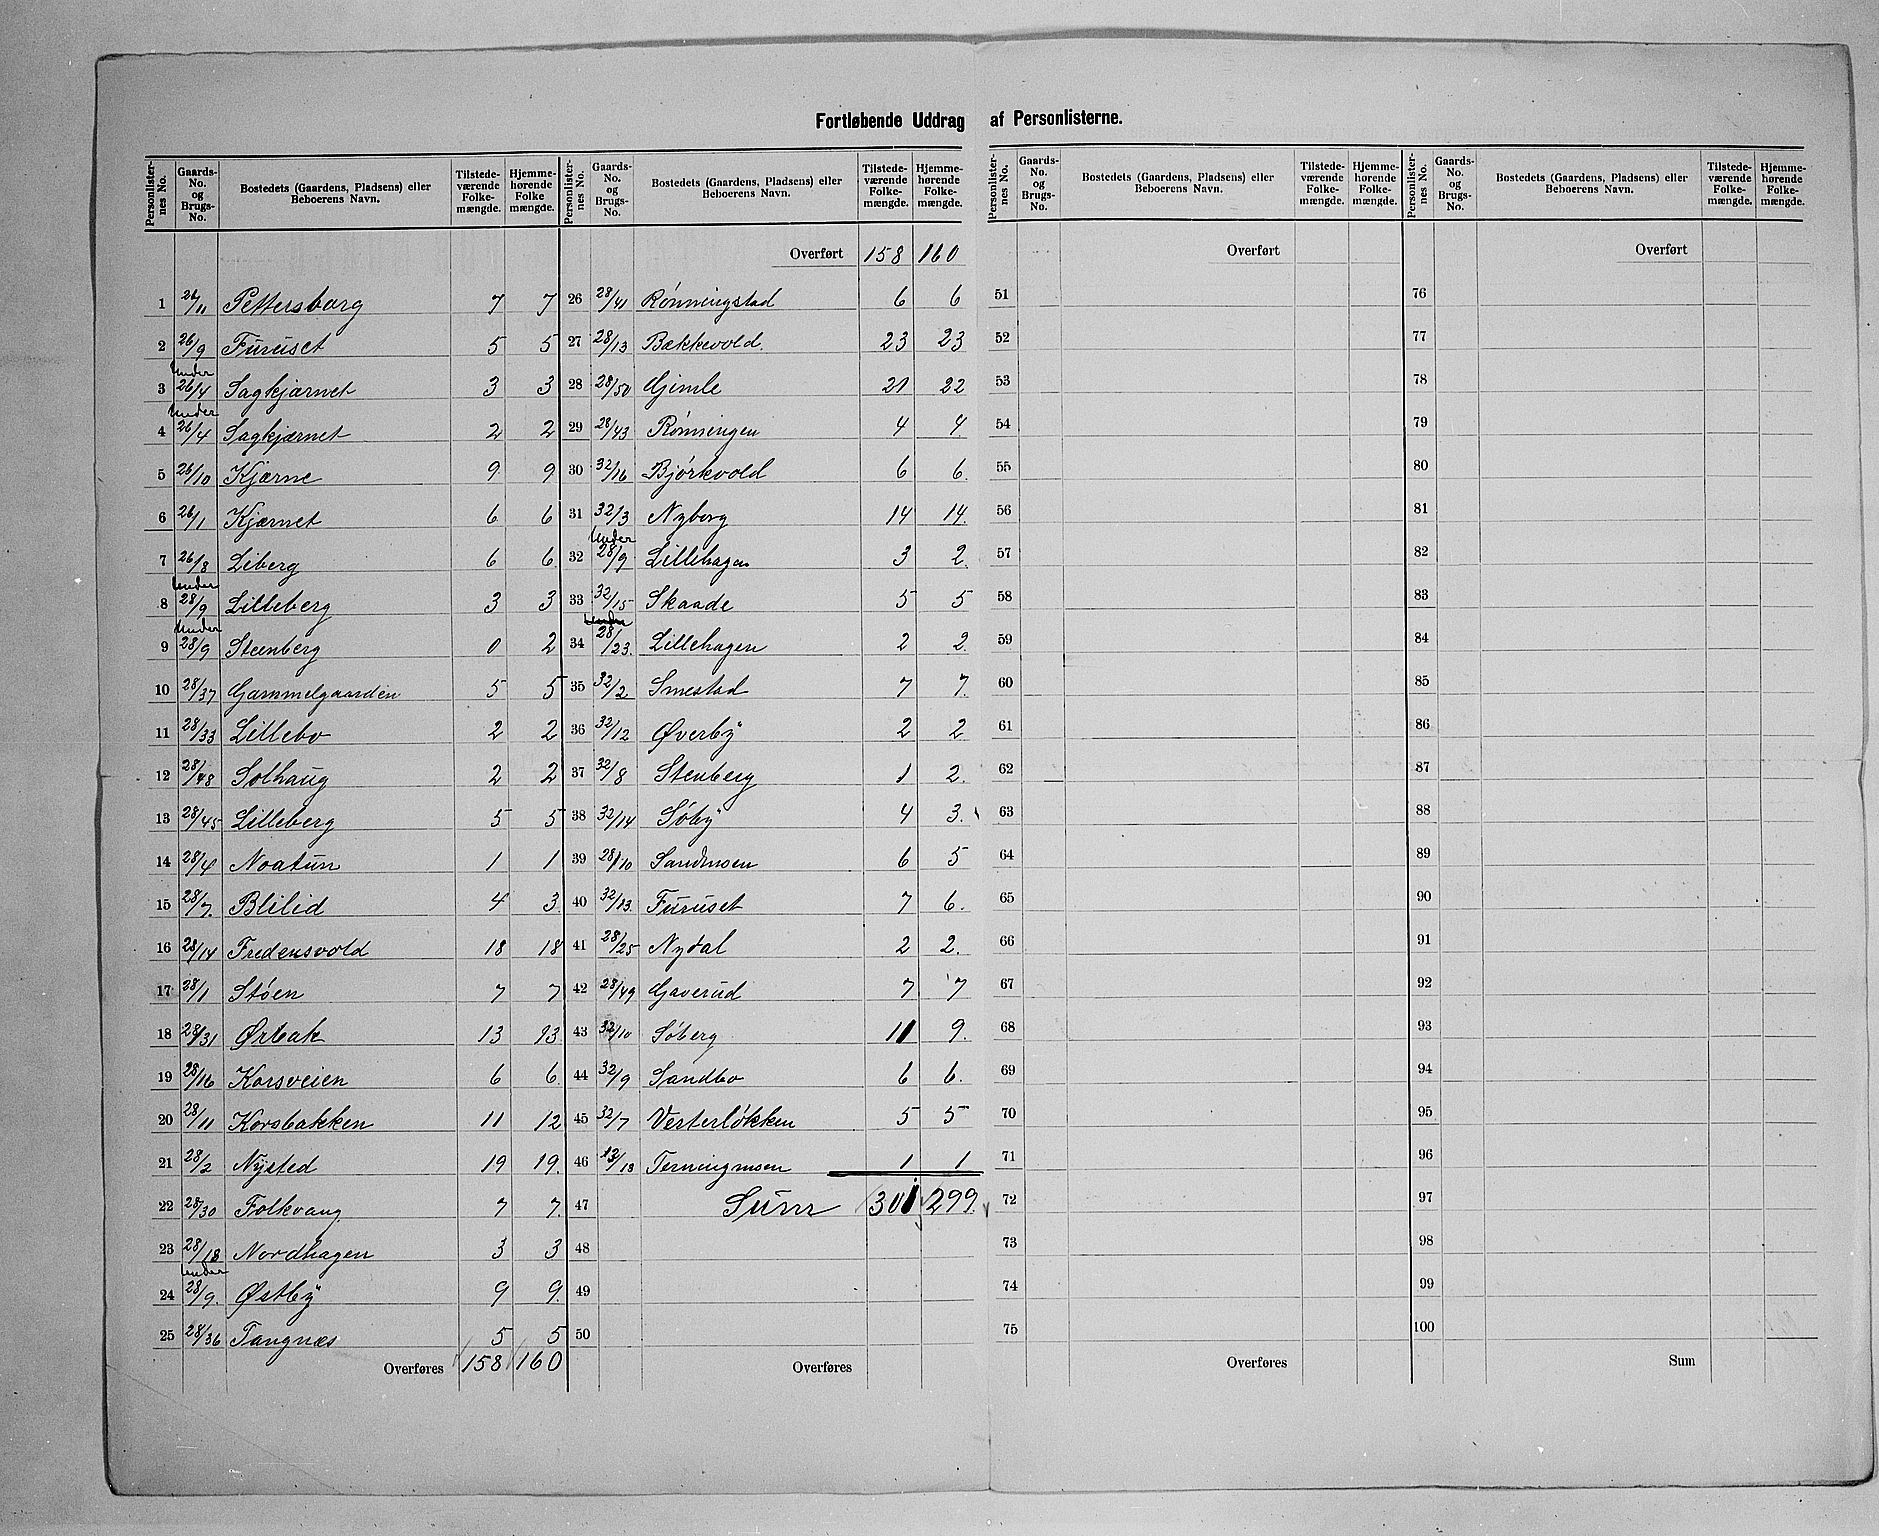 Fortløbende Uddrag af Personlisterne.
Personlister-nes No. | Gaards-No. og Brugs-No. | Bostedets (Gaardens, Pladsens) eller Beboerens Navn. | Tilstede-værende Folke-mængde. | Hjemme-hørende Folke mængde.
1 26/11 Pettersborg 7 7
2 26/9 Furuset 5 5
3 Under 26/4 Sagkjærnet 3 3
4 Under 26/4 Sagkjærnet 2 2
5 26/10 Kjærne 9 9
6 26/1 Kjærnet 6 6
7 26/8 Liberg 6 6
8 Under 28/9 Lilleberg 3 3
9 Under 28/9 Steenberg 0 2
10 28/37 Gammelgaarden 5 5
11 28/33 Lillebo 2 2
12 28/48 Solhaug 2 2
13 28/45 Lilleberg 5 5
14 28/4 Noatun 1 1
15 28/7 Blilid 4 3
16 28/14 Fredensvold 18 18
17 28/1 Støen 7 7
18 28/31 Ørbak 13 13
19 28/16 Korsveien 6 6
20 28/11 Korsbakken 11 12
21 28/2 Nysted 19 19
22 28/30 Folkvang 7 7
23 28/18 Nordhagen 3 3
24 Under 28/9 Østby 9 9
25 28/36 Tangnæs 5 5
Overføres 158 160
Personlister-nes No. | Gaards-No. og Brugs-No. | Bostedets (Gaardens, Pladsens) eller Beboerens Navn. | Tilstede-værende Folke-mængde. | Hjemme-hørende Folke-mængde.
Overført 158 160
26 28/41 Rønningstad 6 6
27 28/13 Bækkevold. 23 23
28 28/50 Gjimle 21 22
29 28/43 Rønningen 4 4
30 32/16 Bjørkvold 6 6
31 32/3 Nyborg 14 14
32 Under 28/9 Lillehagen 3 2
33 32/15 Skaade 5 5
34 Under 28/23 Lillehagen 2 2
35 32/2 Smestad 7 7
36 32/12 Øverby 2 2
37 32/8 Stenberg 1 2
38 32/14 Søby 4 3
39 28/10 Sandmoen 6 5
40 32/13 Furuset 7 6
41 28/25 Nydal 2 2
42 28/49 Gaverud 7 7
43 32/10 Søberg 11 9
44 32/9 Sandbo 6 6
45 32/7 Vesterløkken 5 5
46 13/18 Terningmoen 1 1
47 Sum 301 299
48
49
50
Overføres
Personlister-nes No. | Gaards-No. og Brugs-No. | Bostedets (Gaardens, Pladsens) eller Beboerens Navn. | Tilstede-værende Folke-mængde. | Hjemme-hørende Folke-mængde.
Overført
51
52
53
54
55
56
57
58
59
60
61
62
63
64
65
66
67
68
69
70
71
72
73
74
75
Overføres
Personlister-nes No. | Gaards-No. og Brugs-No. | Bostedets (Gaardens, Pladsens) eller Beboerens Navn. | Tilstede-værende Folke-mængde. | Hjemme-hørende Folke-mængde.
Overført
76
77
78
79
80
81
82
83
84
85
86
87
88
89
90
91
92
93
94
95
96
97
98
99
100
Sum